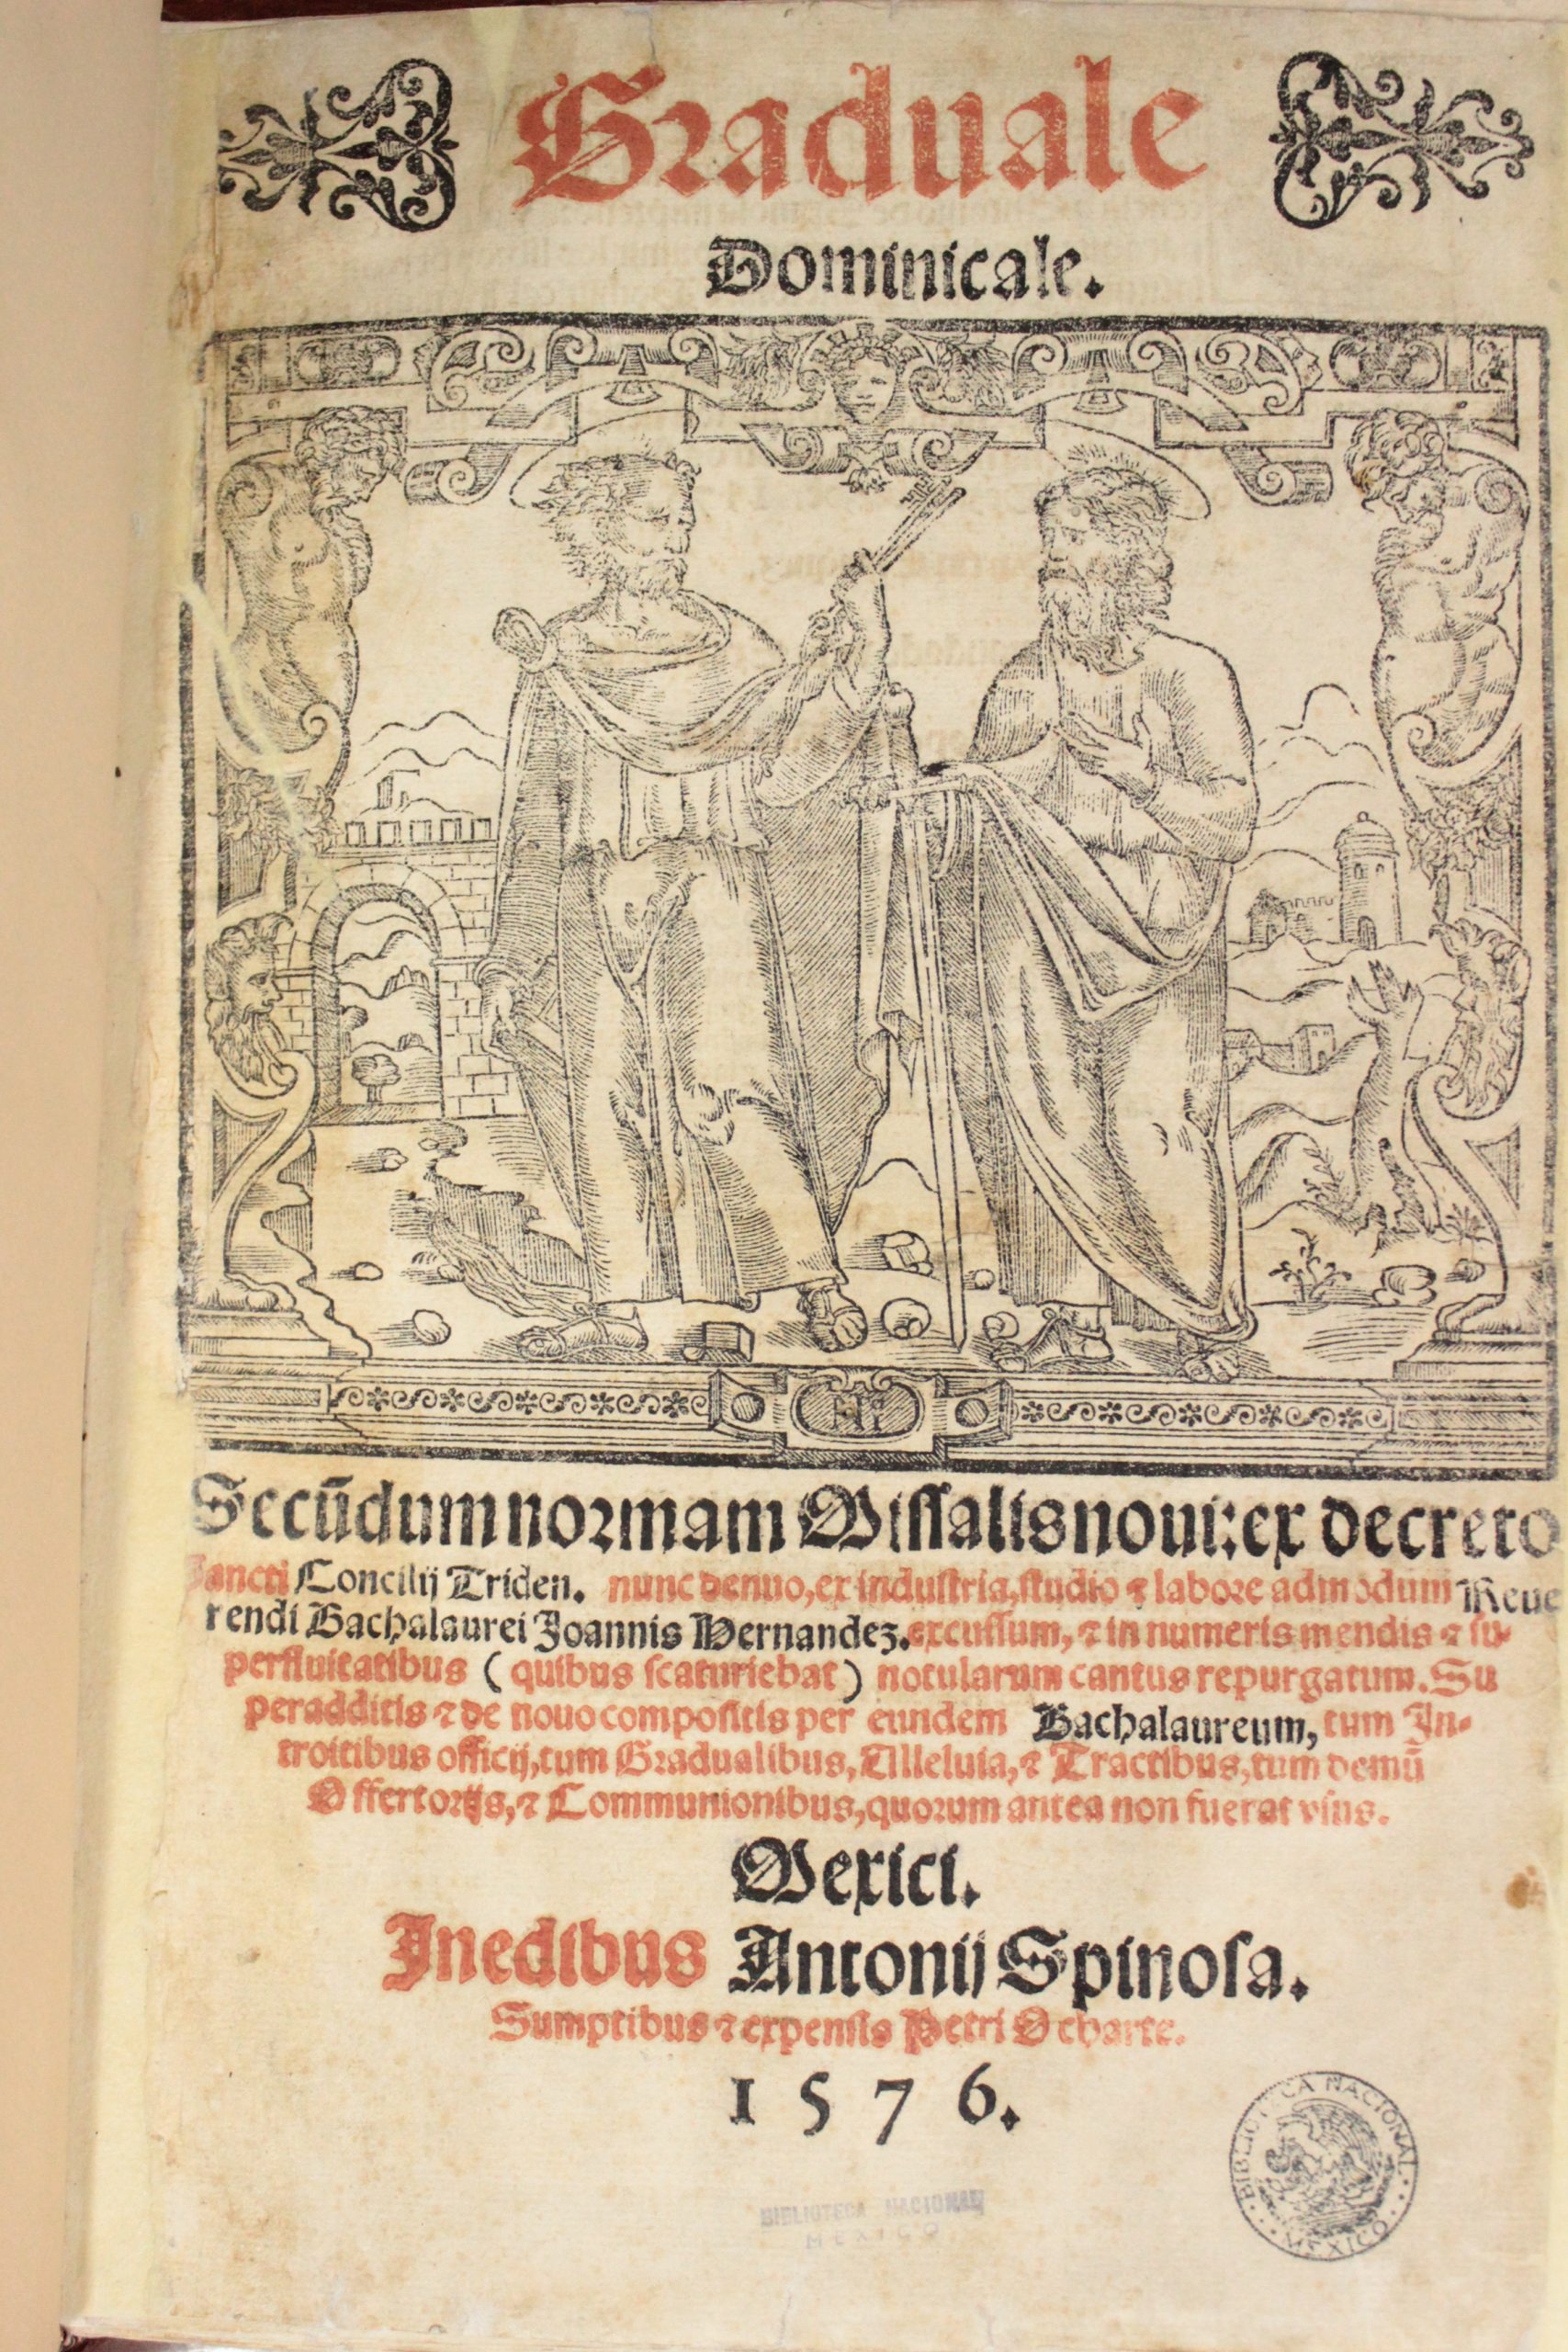 Graduale
Dominicale.
Secũdum normam Missalis noui: ex decreto
Sancti Concilij Triden. nunc denuo, ex industria, studio ⁊ labore admodum Reue
rendi Bachalaurei Joannis Hernandez. excussum, ⁊ in numeris mendis ⁊ su-
perfluitatibus ( quibus scaturiebat ) notularum cantus repurgatum. Su
peradditis ⁊ de nouo compositis per eundem Bachalaureum, tum In-
troitibus officij, tum Gradualibus, Alleluia, ⁊ Tractibus, tum demũ
Offertorijs, ⁊ Communionibus, quorum antea non fuerat vsus.
Mexici.
In edibus Antonij Spinosa.
Sumptibus ⁊ expensis Petri Ocharte.
1 5 7 6.
BIBLIOTECA NACIONAL
MEXICO
BIBLIOTECA NACIONAL
MEXICO